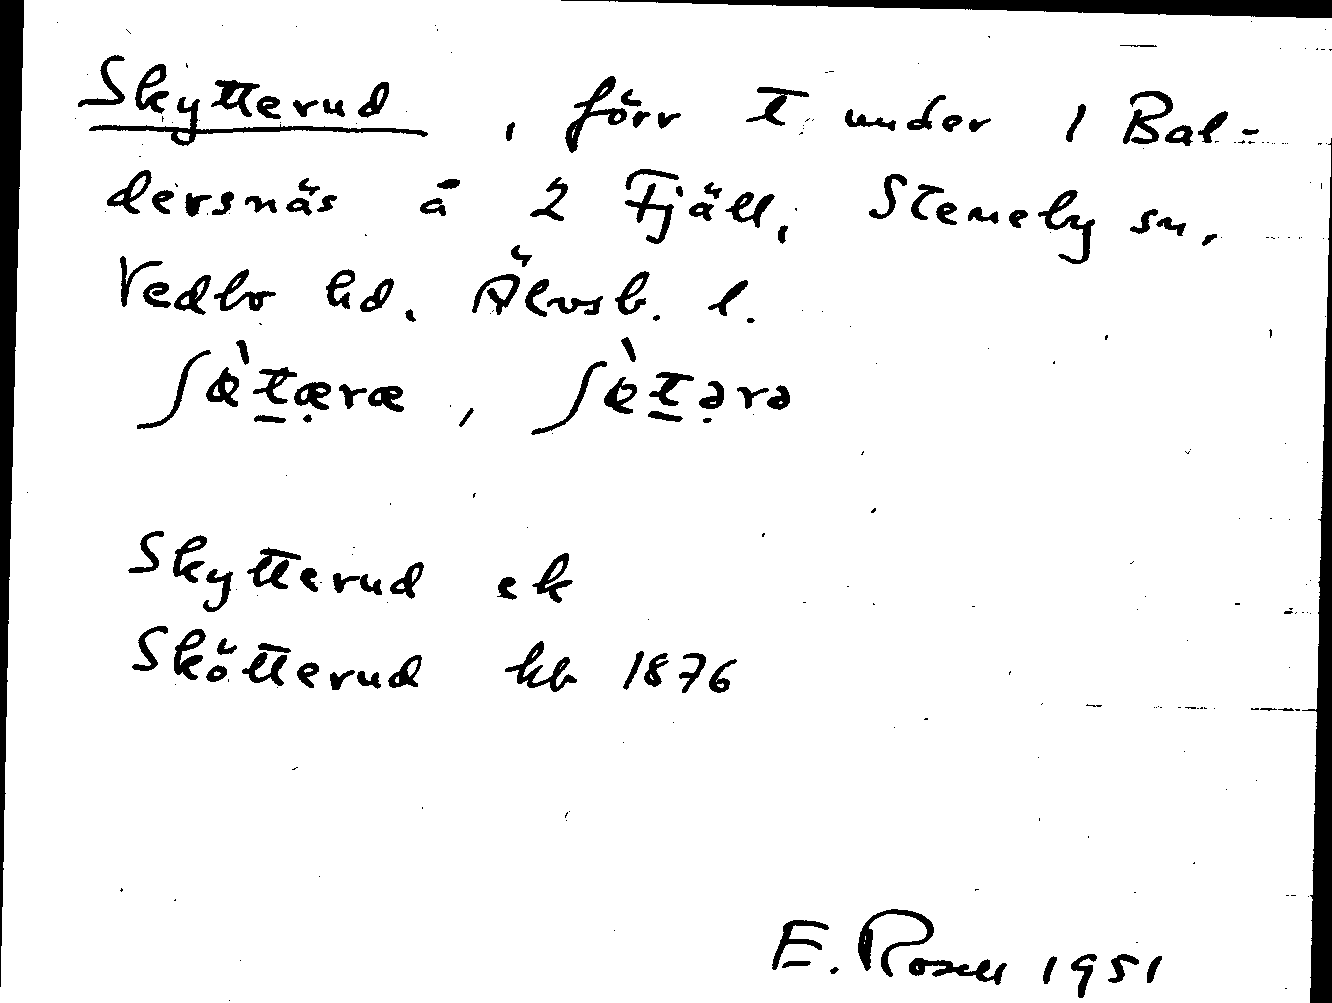 Skytterud, förr t under 1 Bal-
dersnäs å 2 Fjäll, Steneby sn,
Vedbo hd. Älvsb. l.
Skytterud ek
Skötterud kb 1876
E. Rosell 1951